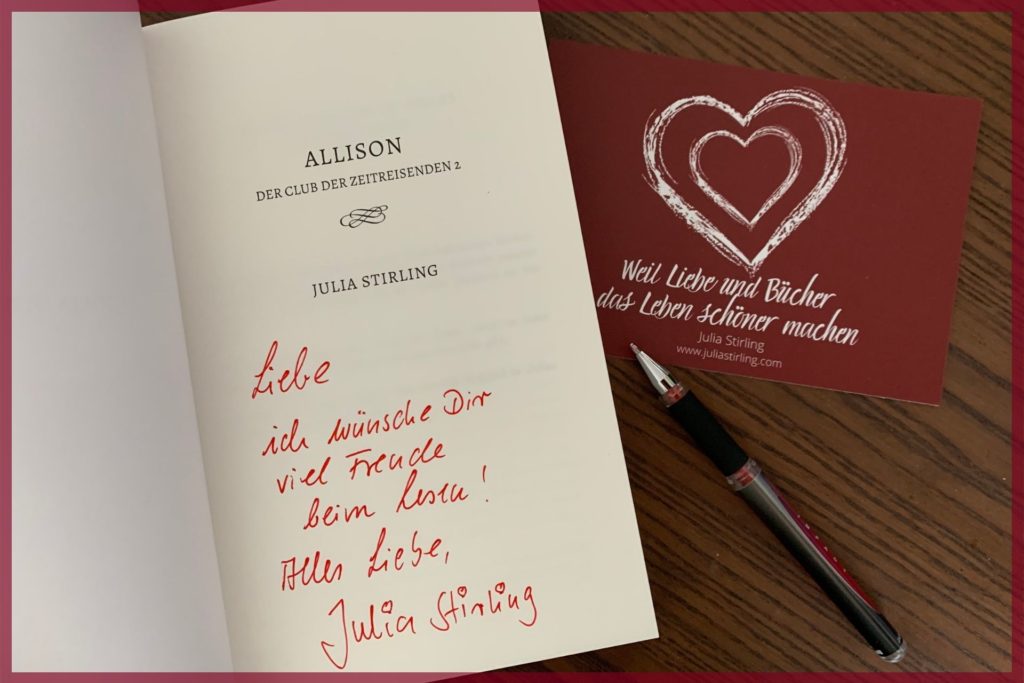 ALLISON
DER CLUB DER ZEITREISENDEN 2
JULIA STIRLING
Liebe
ich wünsche Dir
viel Freude
beim Lesen!
Alles Liebe,
Julia Stirling
Weil Liebe und Bücher
das Leben schöner machen
Julia Stirling
www.juliastirling.com